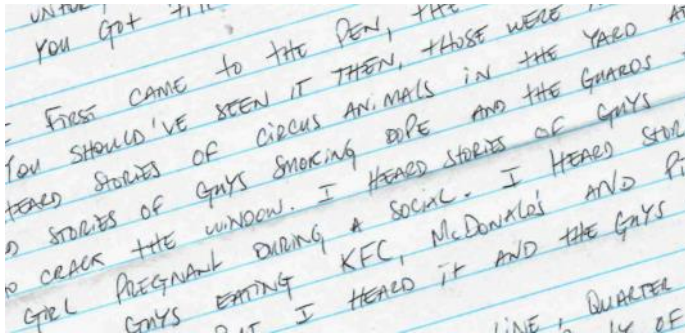 YOU GOT
FIRST CAME TO THE PEN, THE
YOU SHOULD'VE SEEN IT THEN, THOSE WERE
HEARD STORIES OF CIRCUS ANIMALS IN THE YARD
STORIES OF GUYS SMOKING DOPE AND THE GUARDS
CRACK THE WINDOW. I HEARD STORIES OF GUYS
GIRL PREGNANT DURING A SOCIAL. I HEARD
GUYS EATING KFC, McDONALDS AND
I HEARD IT AND THE GUYS
LINE, QUARTER
OF